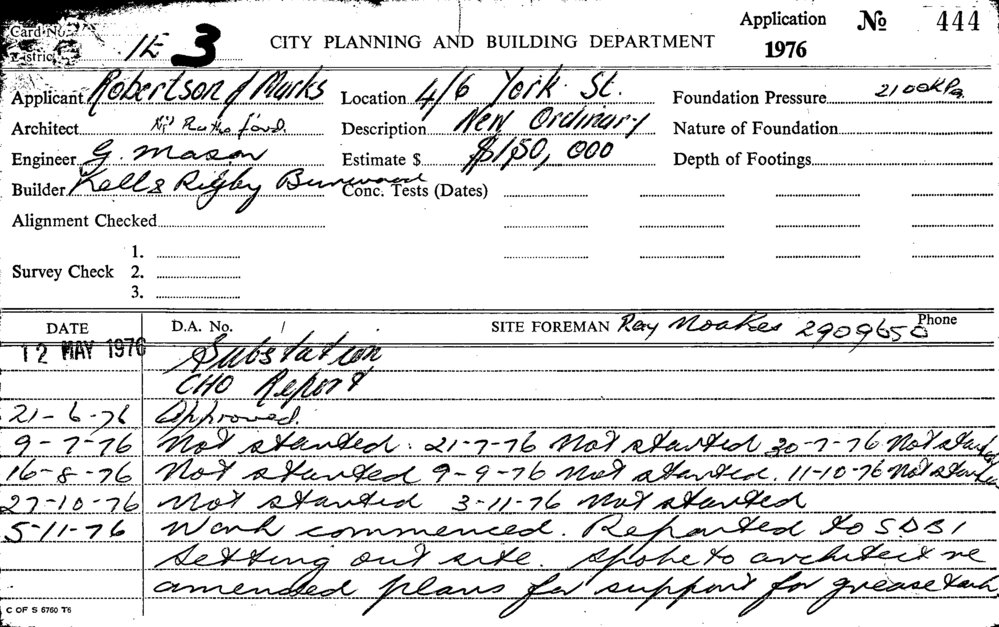 Card No.
District
1E 3
CITY PLANNING AND BUILDING DEPARTMENT
Application No 444
1976
Applicant Robertson & Marks Location 4/6 York St. Foundation Pressure 2100KPa.
Architect Rutherford. Description New Ordinary Nature of Foundation
Engineer G. Mason Estimate $ $150,000 Depth of Footings
Builder Kell & Rigby Burwood Conc. Tests (Dates)
Alignment Checked
1.
Survey Check 2.
3.
DATE D.A. No. / SITE FOREMAN Ray Noakes 2909650 Phone
12 MAY 1976 Substation
CHO Report
21-6-76 Approved.
9-7-76 Not started. 21-7-76 Not started 30-7-76 Not started
16-8-76 Not started 9-9-76 Not started. 11-10-76 Not started
27-10-76 Not started 3-11-76 Not started
5-11-76 Work commenced. Reported to S.D.B.I
Setting out site. Spoke to architect re
amended plans for support for grease tank
C OF S 6760 T6